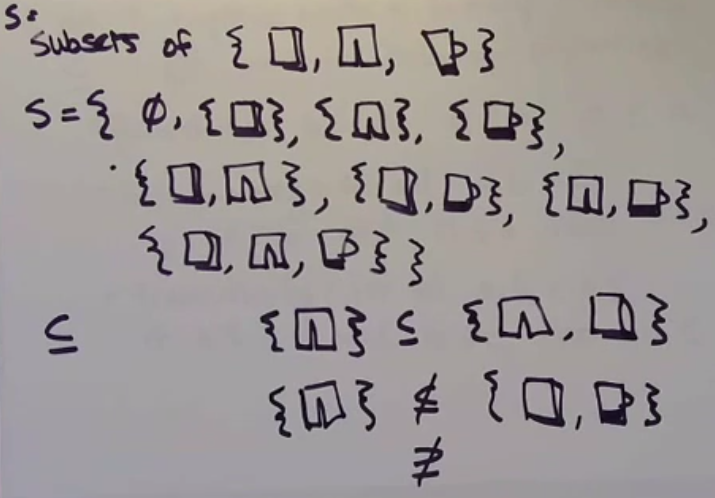 S:
subsets of { , , }
S = { ∅, { }, { }, { },
{ , }, { , }, { , },
{ , , } }
⊆ { } ⊆ { , }
{ } ⊈ { , }
⊉